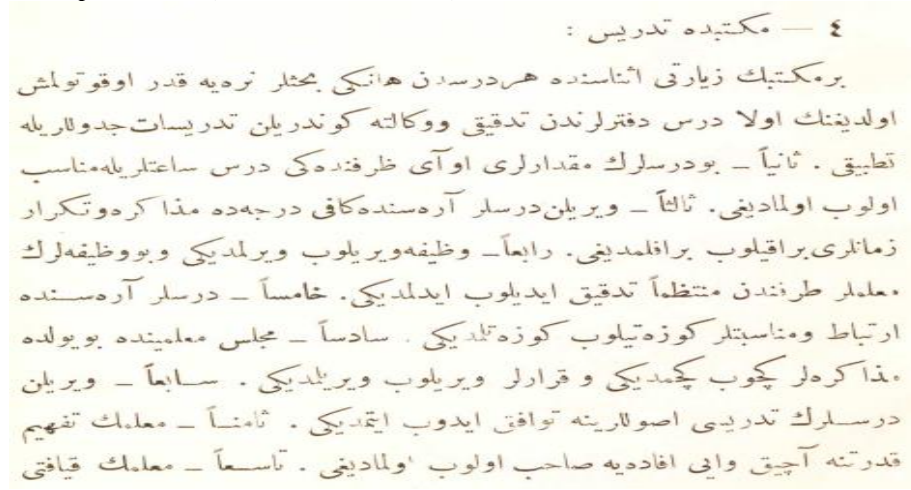 ٤ — مكتبده تدريس :
برمكتبك زيارتی اثناسنده هردرسدن هانكی بحثلر نره‌يه قدر اوقوتولمش
اولديغنك اولا درس دفترلرندن تدقيقی ووكالته كوندريلن تدريسات جدوللريله
تطبيقی . ثانياً ـ بودرسلرك مقدارلری اوآی ظرفنده‌كی درس ساعتلريله‌مناسب
اولوب اولماديغی. ثالثاً ـ ويريلن درسلر آره‌سنده‌كافی درجه‌ده مذا كره‌وتكرار
زمانلری براقيلوب براقلمديغی. رابعاً ـ وظيفه‌ويريلوب ويرلمديكی وبووظيفه‌لرك
معلملر طرفندن منتظماً تدقيق ايديلوب ايدلمديكی. خامساً ـ درسلر آره‌سنده
ارتباط ومناسبتلر كوزه‌تيلوب كوزه‌تلمديكی . سادساً ـ مجلس معلمينده بويولده
مذا كره‌لر كچوب كچمديكی و قرارلر ويريلوب ويريلمديكی . سابعاً ـ ويريلن
درسلرك تدريسی اصوللرينه توافق ايدوب ايتمديكی . ثامناً ـ معلمك تفهيم
قدرتنه آچيق وايی افاده‌يه صاحب اولوب اولماديغی . تاسعاً ـ معلمك قيافتی